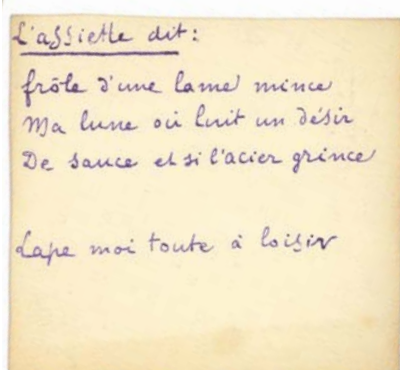 L'assiette dit:
frôle d'une lame mince
Ma lune où luit un désir
De sauce et si l'acier grince
Lape moi toute à loisir